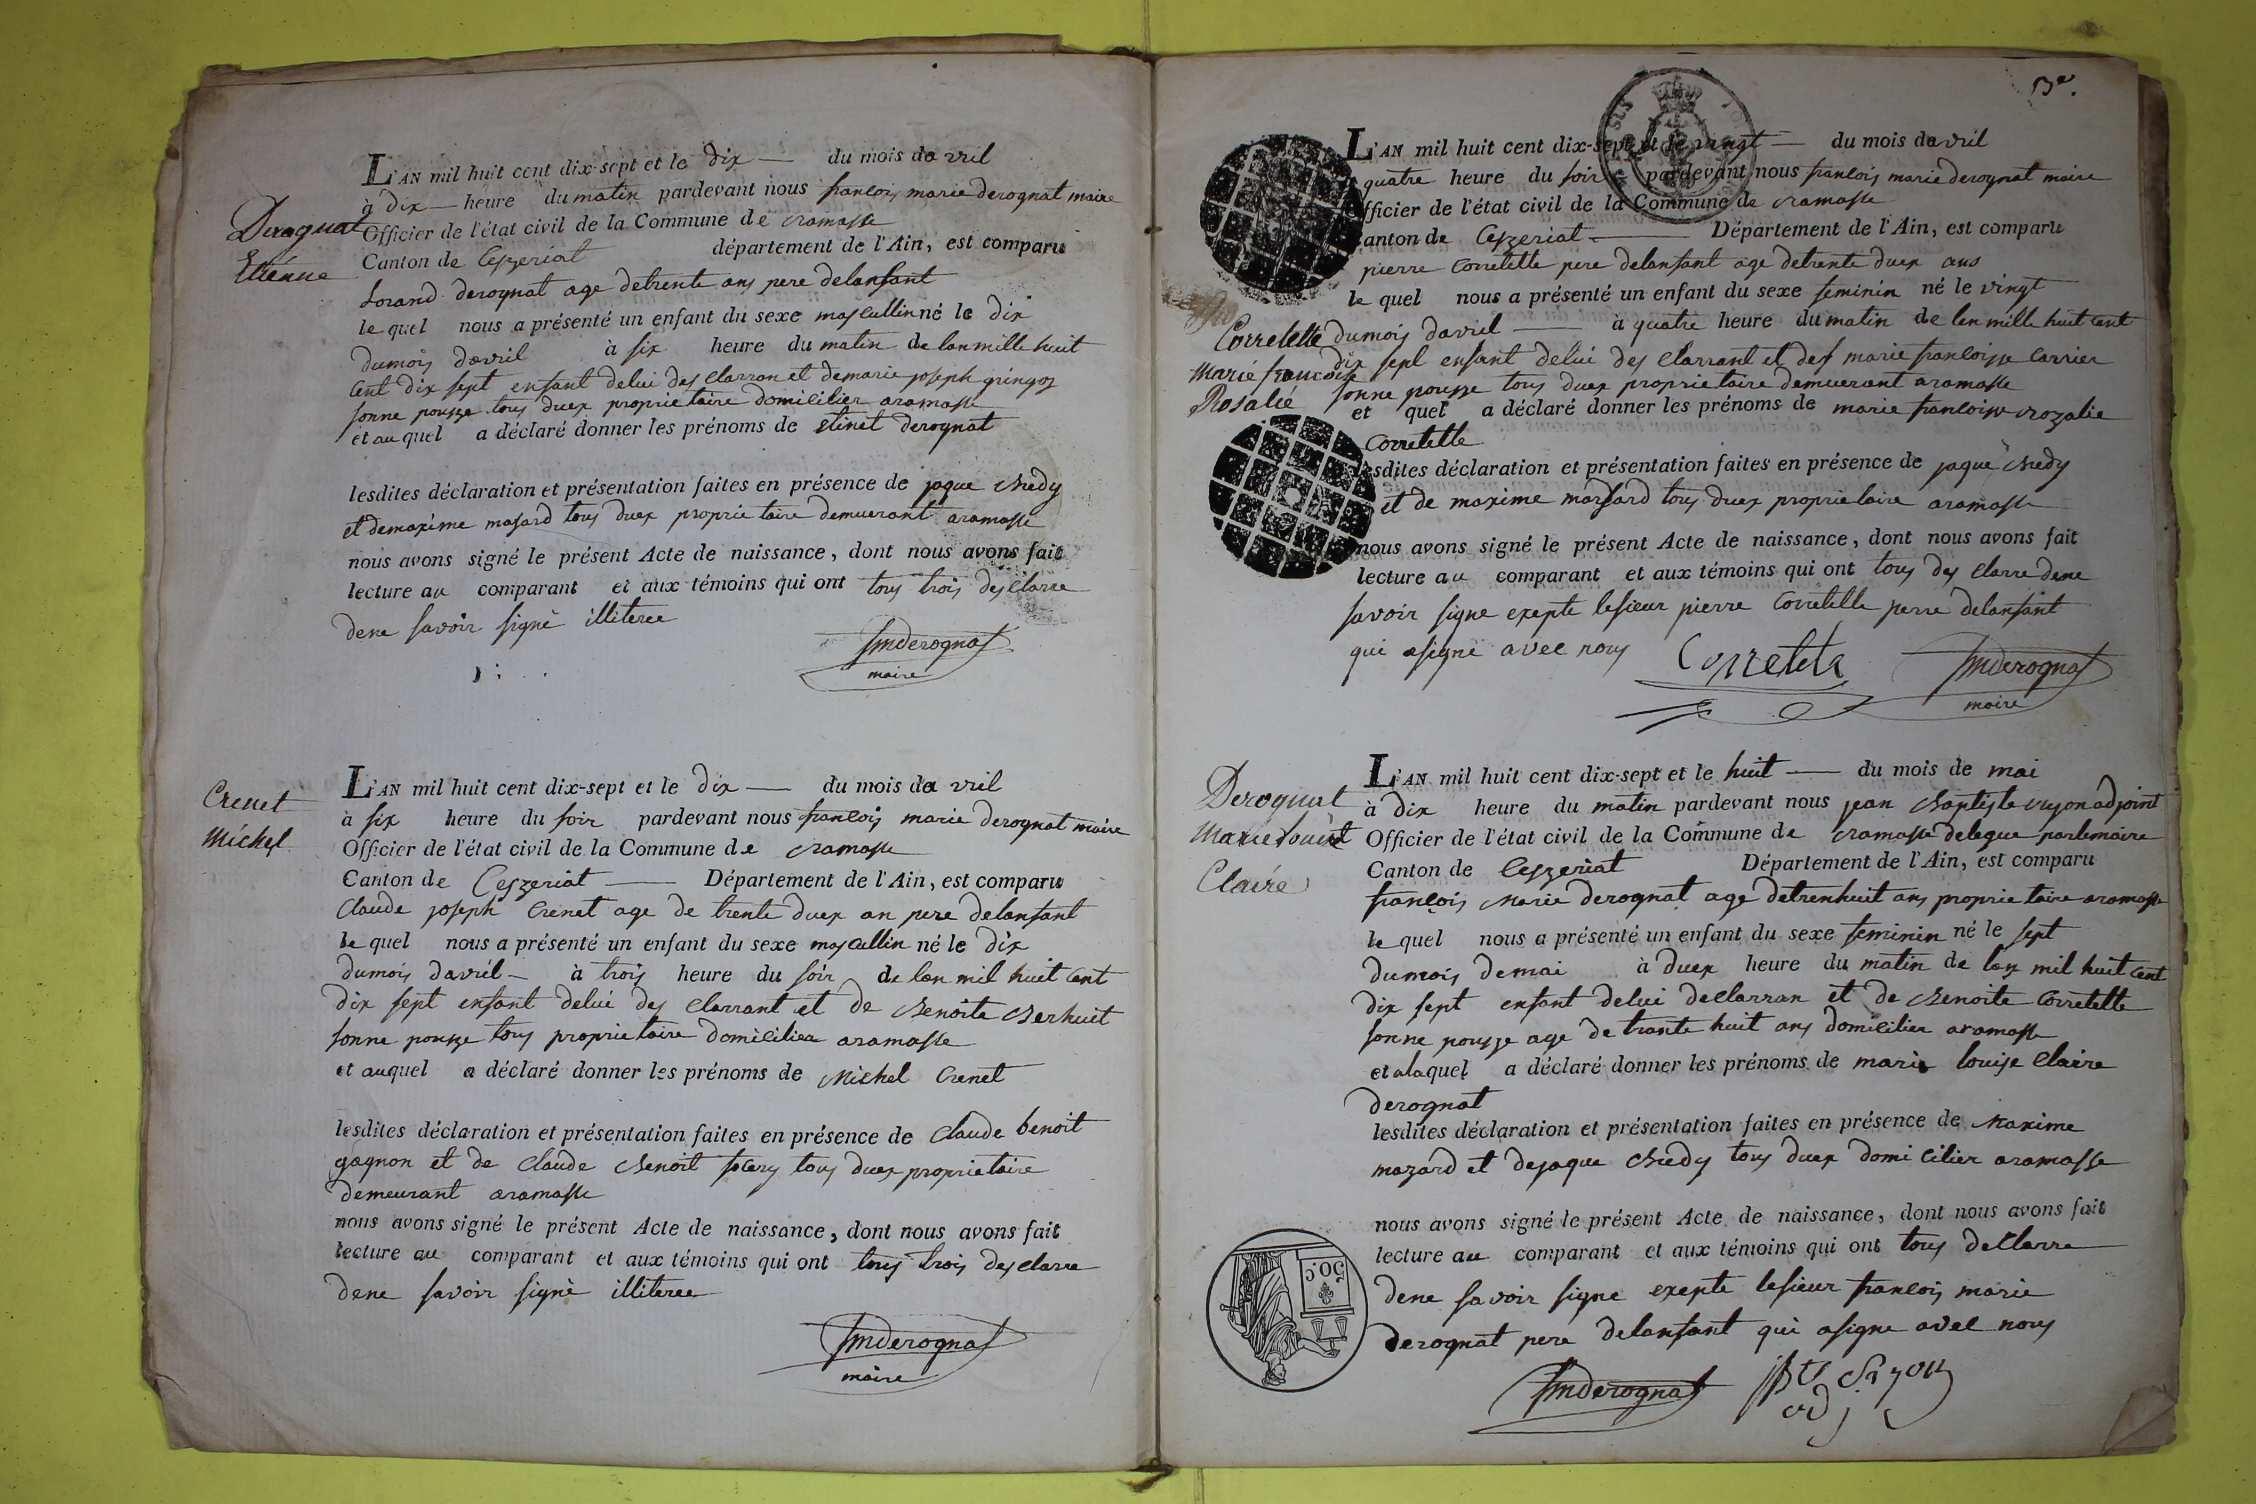 Derognat
Etienne
L'AN mil huit cent dix-sept et le dix — du mois davril
à dix — heure du matin pardevant nous francois marie derognat maire
Officier de l'état civil de la Commune de ramasse
Canton de Ceyzeriat département de l'Ain, est comparu
derognat age detrente ans pere delanfant
le quel nous a présenté un enfant du sexe mascullin né le dix
dumois davril à six heure du matin de lan mille huit
cent dix sept enfant delui desclarran et demarie joseph gringoz
sonne pousze tous duex proprietaire domicilier aramasse
et au quel a déclaré donner les prénoms de etinet derognat
lesdites déclaration et présentation faites en présence de jaque
et demaxime masard tous duex proprietaire demuerant aramasse
nous avons signé le présent Acte de naissance, dont nous avons fait
lecture au comparant et aux témoins qui ont tous trois desclarre
dene savoir signè illiteree
fmderognat
maire
Crenet
Michel
L'AN mil huit cent dix-sept et le dix — du mois davril
à six heure du soir pardevant nous francois marie derognat maire
Officier de l'état civil de la Commune de ramasse
Canton de Ceyzeriat — Département de l'Ain, est comparu
Claude joseph Crenet age de trente duex an pere delanfant
le quel nous a présenté un enfant du sexe mascullin né le dix
dumois davril — à trois heure du soir de lan mil huit cent
dix sept enfant delui desclarrant et de Benoite Berhuit
sonne pousze tous proprietaire domicilier aramasse
et auquel a déclaré donner les prénoms de Michel Crenet
lesdites déclaration et présentation faites en présence de Claude benoit
gagnon et de Claude Benoit tous duex proprietaire
demeurant aramasse
nous avons signé le présent Acte de naissance, dont nous avons fait
lecture au comparant et aux témoins qui ont tous trois desclarre
dene savoir signè illiteree
fmderognat
maire
Corretette
Marie francoise
Rosalie
L'AN mil huit cent dix-sept et le vingt — du mois davril
quatre heure du soir pardevant nous francois marie derognat maire
Officier de l'état civil de la Commune de ramasse
Canton de Ceyzeriat — Département de l'Ain, est comparu
pierre Corretette pere delanfant age detrente duex ans
le quel nous a présenté un enfant du sexe feminin né le vingt
dumois davril — à quatre heure du matin de lan mille huit cent
dix sept enfant delui desclarrant et def marie francoisse Carrier
sonne pousze tous duex proprietaire demuerant aramasse
et quel a déclaré donner les prénoms de marie francoisse rozalie
Corretette
lesdites déclaration et présentation faites en présence de jaque
et de maxime massard tous duex proprietaire aramasse
nous avons signé le présent Acte de naissance, dont nous avons fait
lecture au comparant et aux témoins qui ont tous desclarre dene
savoir signe exepte lesieur pierre Corretette perre delanfant
qui asigne avec nous
Corretette
fmderognat
maire
Derognat
Marie Louise
Claire
L'AN mil huit cent dix-sept et le huit — du mois de mai
à dix heure du matin pardevant nous jean Baptiste rugon adjoint
Officier de l'état civil de la Commune de ramasse delegue parlemaire
Canton de Ceyzeriat Département de l'Ain, est comparu
françois Marie derognat age detrenhuit ans proprietaire aramasse
le quel nous a présenté un enfant du sexe feminin né le sept
dumois demai à duex heure du matin de lan mil huit cent
dix sept enfant delui declarran et de Benoite Corretette
sonne pousze age detrante huit ans domicilier aramasse
et alaquel a déclaré donner les prénoms de marie louise Claire
derognat
lesdites déclaration et présentation faites en présence de Maxime
mazard et dejaque tous duex domicilier aramasse
nous avons signé le présent Acte de naissance, dont nous avons fait
lecture au comparant et aux témoins qui ont tous declarre
dene savoir signe exepte lesieur francois marie
derognat pere delanfant qui asigne avec nous
fmderognat
adj
50.C